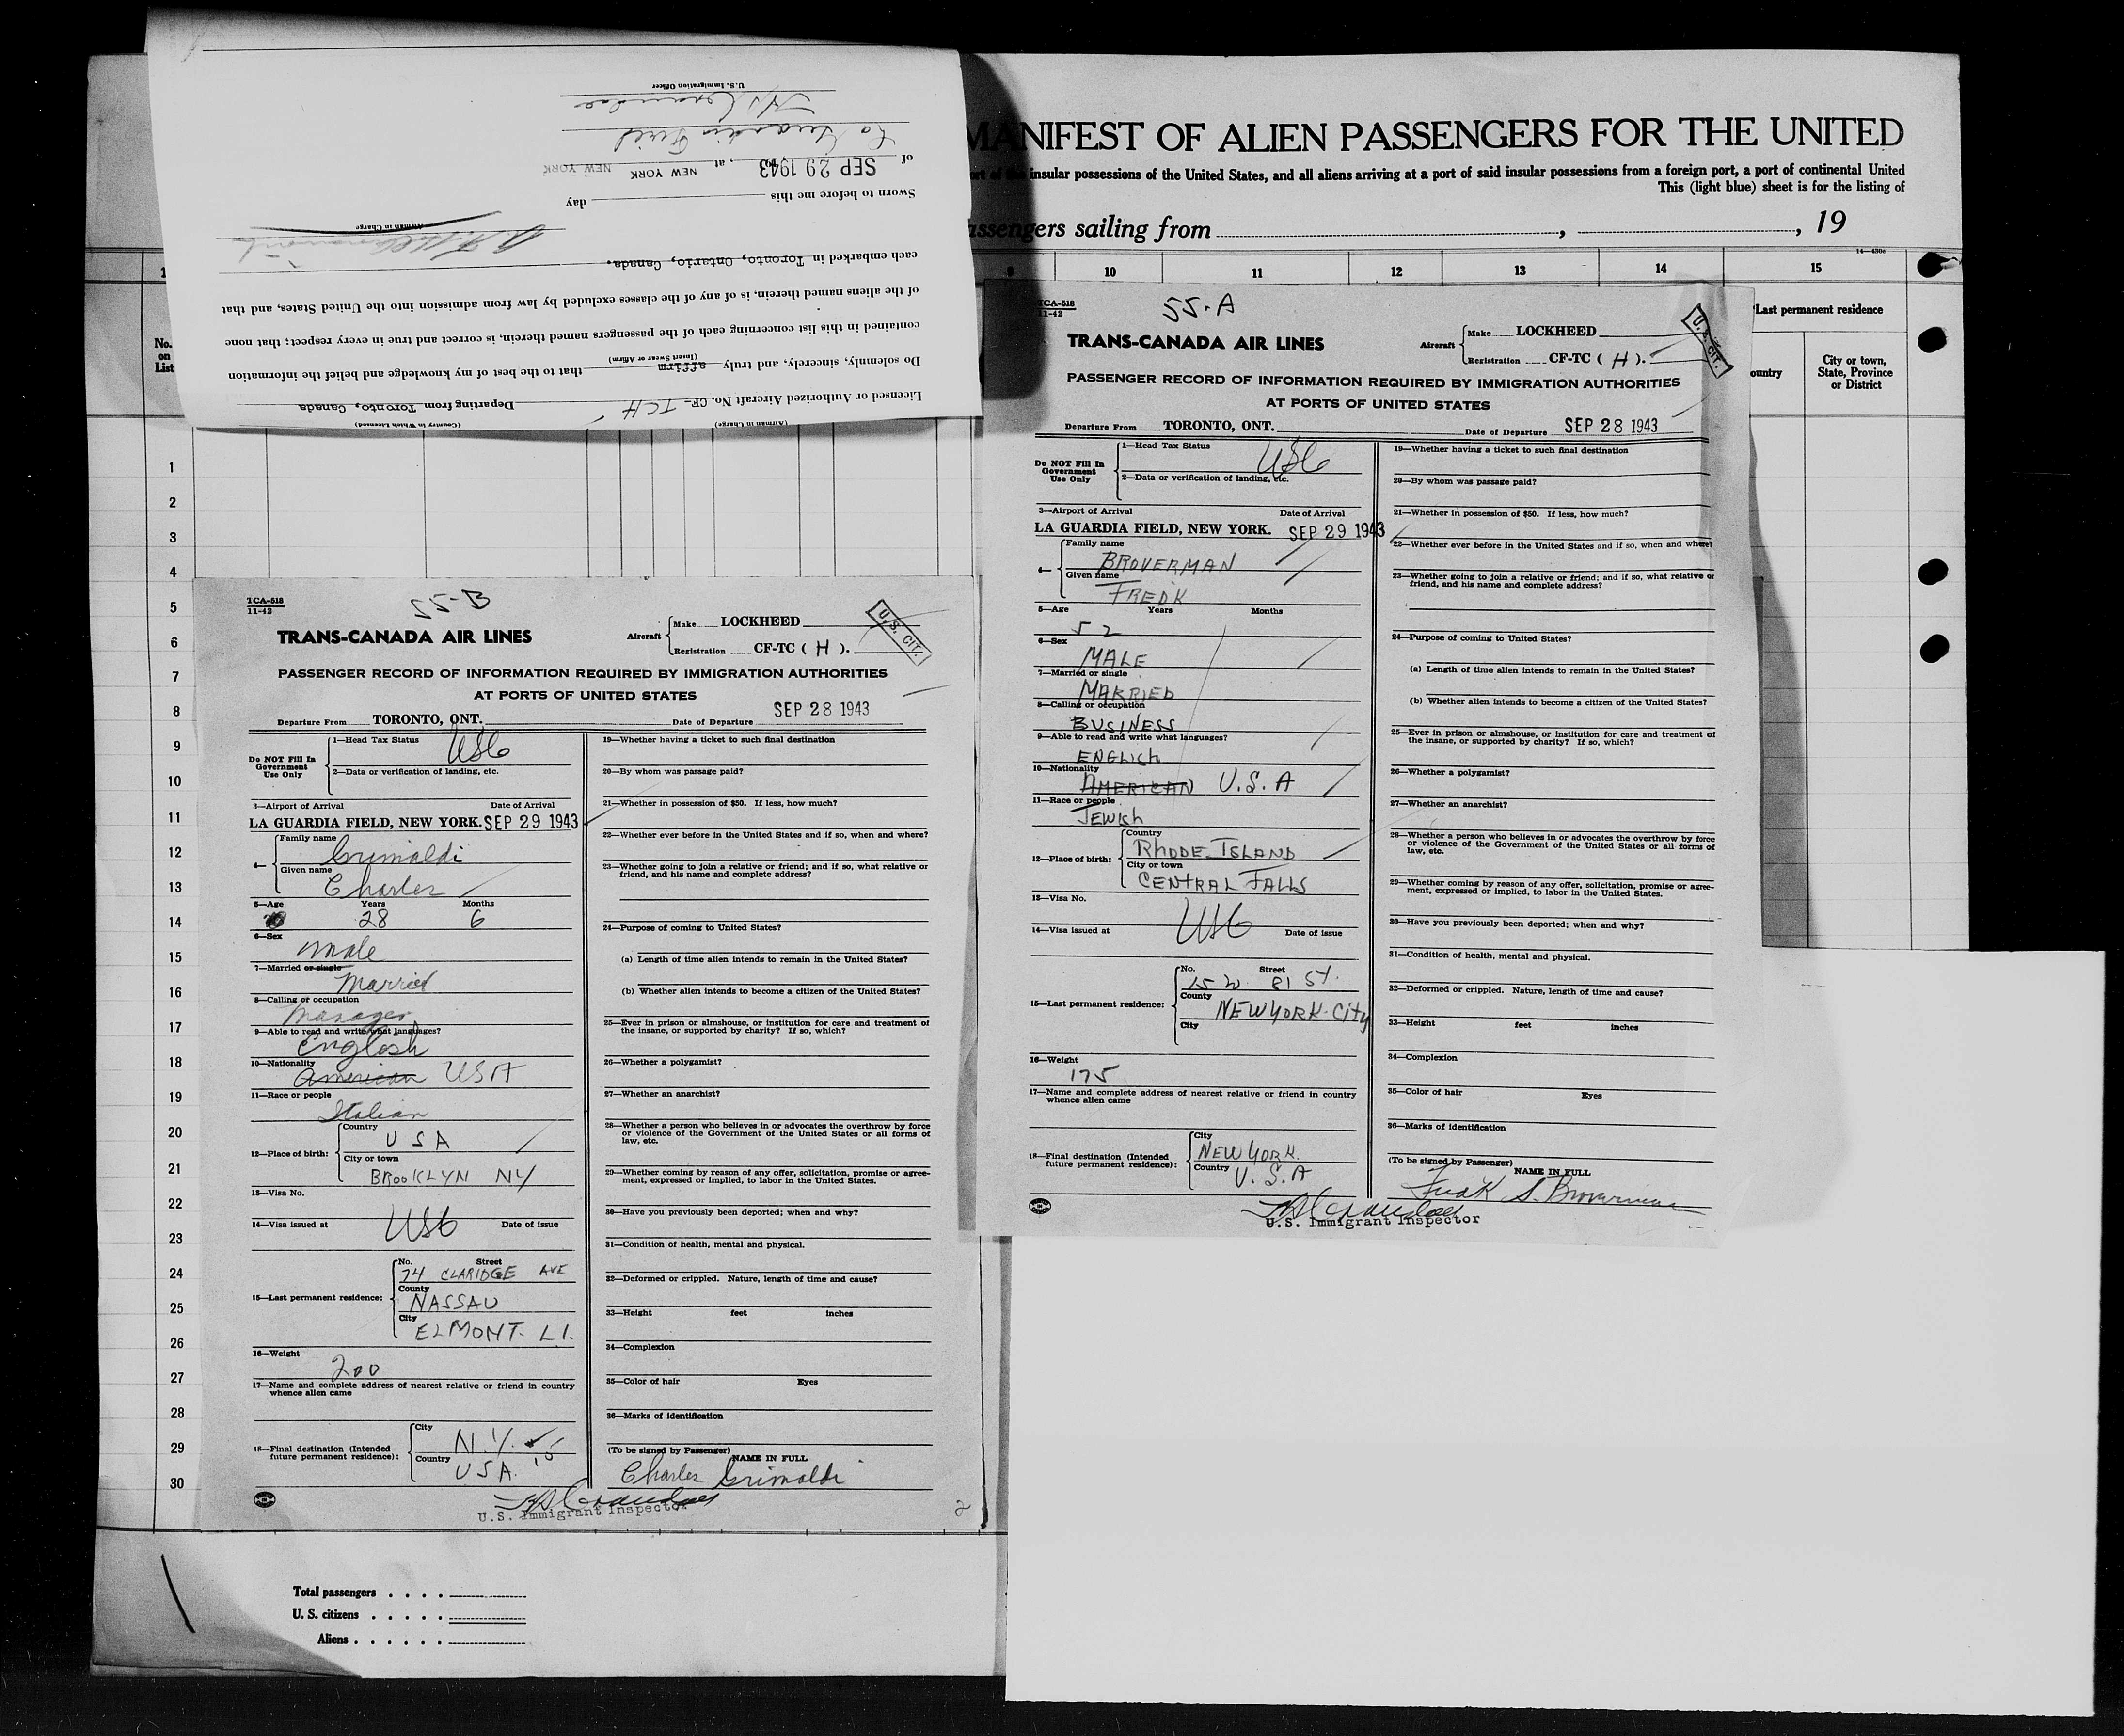 MANIFEST OF ALIEN PASSENGERS FOR THE UNITED
insular possessions of the United States, and all aliens arriving at a port of said insular possessions from a foreign port, a port of continental United
This (light blue) sheet is for the listing of
assengers sailing from , , 19
14—430c
9 10 11 12 13 14 15
Last permanent residence
ountry
City or town, State, Province or District
No. on List
1
2
3
4
5
6
7
8
9
10
11
12
13
14
15
16
17
18
19
20
21
22
23
24
25
26
27
28
29
30
Total passengers . . . .
U. S. citizens . . . . .
Aliens . . . . . .
(Airman in Charge) (Country in Which Licensed)
Licensed or Authorized Aircraft No. CF- TCH Departing from Toronto, Canada
Do solemnly, sincerely, and truly affirm that to the best of my knowledge and belief the information
(Insert Swear or Affirm)
contained in this list concerning each of the passengers named therein, is correct and true in every respect; that none
of the aliens named therein, is of any of the classes excluded by law from admission into the United States, and that
each embarked in Toronto, Ontario, Canada.
Airman in Charge
Sworn to before me this day
of SEP 29 1943 , at NEW YORK NEW YORK
La Guardia Field
U.S. Immigration Officer
TCA-518
11-42
55-B
TRANS-CANADA AIR LINES
Aircraft
Make LOCKHEED
Registration CF-TC ( H ).
U.S. CIT.
PASSENGER RECORD OF INFORMATION REQUIRED BY IMMIGRATION AUTHORITIES
AT PORTS OF UNITED STATES
Departure From TORONTO, ONT. Date of Departure SEP 28 1943
Do NOT Fill In Government Use Only
1—Head Tax Status USC
2—Data or verification of landing, etc.
3—Airport of Arrival Date of Arrival
LA GUARDIA FIELD, NEW YORK. SEP 29 1943
4—
Family name
Grimaldi
Given name
Charles
5—Age Years Months
28 6
6—Sex
male
7—Married or single
Married
8—Calling or occupation
Manager
9—Able to read and write what languages?
English
10—Nationality
American USA
11—Race or people
Italian
12—Place of birth:
Country
USA
City or town
BROOKLYN NY
13—Visa No.
14—Visa issued at USC Date of issue
15—Last permanent residence:
No. Street
74 CLARIDGE AVE
County
NASSAU
City
ELMONT. L I.
16—Weight
200
17—Name and complete address of nearest relative or friend in country whence alien came
18—Final destination (Intended future permanent residence):
City
N.Y.
Country
USA.
19—Whether having a ticket to such final destination
20—By whom was passage paid?
21—Whether in possession of $50. If less, how much?
22—Whether ever before in the United States and if so, when and where?
23—Whether going to join a relative or friend; and if so, what relative or friend, and his name and complete address?
24—Purpose of coming to United States?
(a) Length of time alien intends to remain in the United States?
(b) Whether alien intends to become a citizen of the United States?
25—Ever in prison or almshouse, or institution for care and treatment of the insane, or supported by charity? If so, which?
26—Whether a polygamist?
27—Whether an anarchist?
28—Whether a person who believes in or advocates the overthrow by force or violence of the Government of the United States or all forms of law, etc.
29—Whether coming by reason of any offer, solicitation, promise or agreement, expressed or implied, to labor in the United States.
30—Have you previously been deported; when and why?
31—Condition of health, mental and physical.
32—Deformed or crippled. Nature, length of time and cause?
33—Height feet inches
34—Complexion
35—Color of hair Eyes
36—Marks of identification
(To be signed by Passenger)
NAME IN FULL
Charles Grimaldi
U.S. Immigrant Inspector
2
TCA-518
11-42
55-A
TRANS-CANADA AIR LINES
Aircraft
Make LOCKHEED
Registration CF-TC ( H ).
U.S. CIT.
PASSENGER RECORD OF INFORMATION REQUIRED BY IMMIGRATION AUTHORITIES
AT PORTS OF UNITED STATES
Departure From TORONTO, ONT. Date of Departure SEP 28 1943
Do NOT Fill In Government Use Only
1—Head Tax Status USC
2—Data or verification of landing, etc.
3—Airport of Arrival Date of Arrival
LA GUARDIA FIELD, NEW YORK. SEP 29 1943
4—
Family name
BROVERMAN
Given name
FREDK
5—Age Years Months
52
6—Sex
MALE
7—Married or single
MARRIED
8—Calling or occupation
BUSINESS
9—Able to read and write what languages?
ENGLISH
10—Nationality
AMERICAN U.S.A
11—Race or people
JEWISH
12—Place of birth:
Country
RHODE ISLAND
City or town
CENTRAL FALLS
13—Visa No.
14—Visa issued at USC Date of issue
15—Last permanent residence:
No. Street
15 W. 81 St.
County
NEW YORK-City
City
16—Weight
175
17—Name and complete address of nearest relative or friend in country whence alien came
18—Final destination (Intended future permanent residence):
City
NEW YORK.
Country
U.S.A
19—Whether having a ticket to such final destination
20—By whom was passage paid?
21—Whether in possession of $50. If less, how much?
22—Whether ever before in the United States and if so, when and where?
23—Whether going to join a relative or friend; and if so, what relative or friend, and his name and complete address?
24—Purpose of coming to United States?
(a) Length of time alien intends to remain in the United States?
(b) Whether alien intends to become a citizen of the United States?
25—Ever in prison or almshouse, or institution for care and treatment of the insane, or supported by charity? If so, which?
26—Whether a polygamist?
27—Whether an anarchist?
28—Whether a person who believes in or advocates the overthrow by force or violence of the Government of the United States or all forms of law, etc.
29—Whether coming by reason of any offer, solicitation, promise or agreement, expressed or implied, to labor in the United States.
30—Have you previously been deported; when and why?
31—Condition of health, mental and physical.
32—Deformed or crippled. Nature, length of time and cause?
33—Height feet inches
34—Complexion
35—Color of hair Eyes
36—Marks of identification
(To be signed by Passenger)
NAME IN FULL
Fredk S. Broverman
U.S. Immigrant Inspector